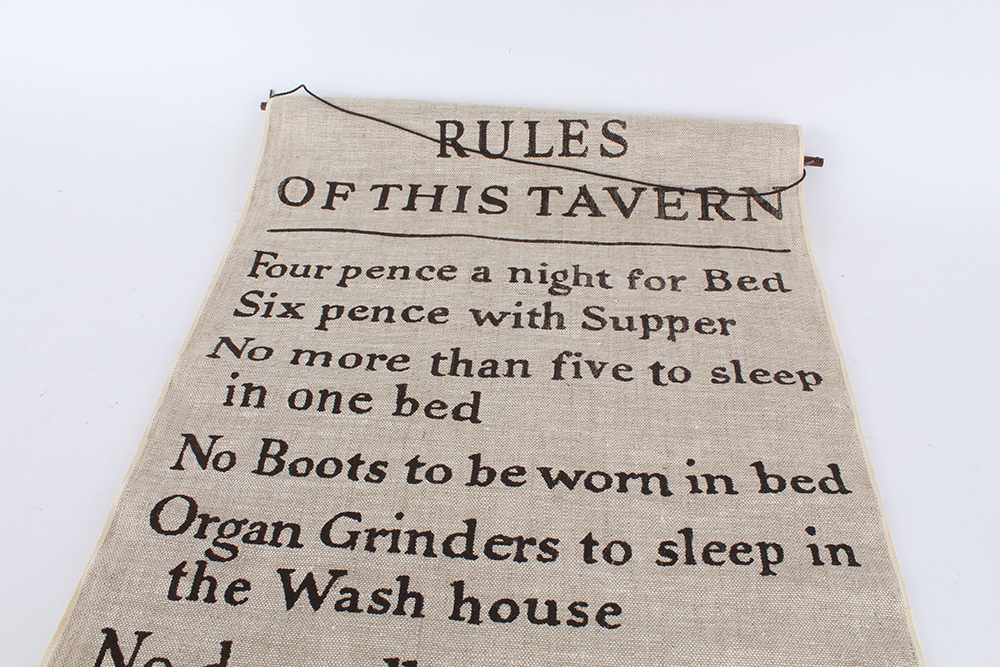 RULES
OF THIS TAVERN
Four pence a night for Bed
Six pence with Supper
No more than five to sleep
in one bed
No Boots to be worn in bed
Organ Grinders to sleep in
the Wash house
No